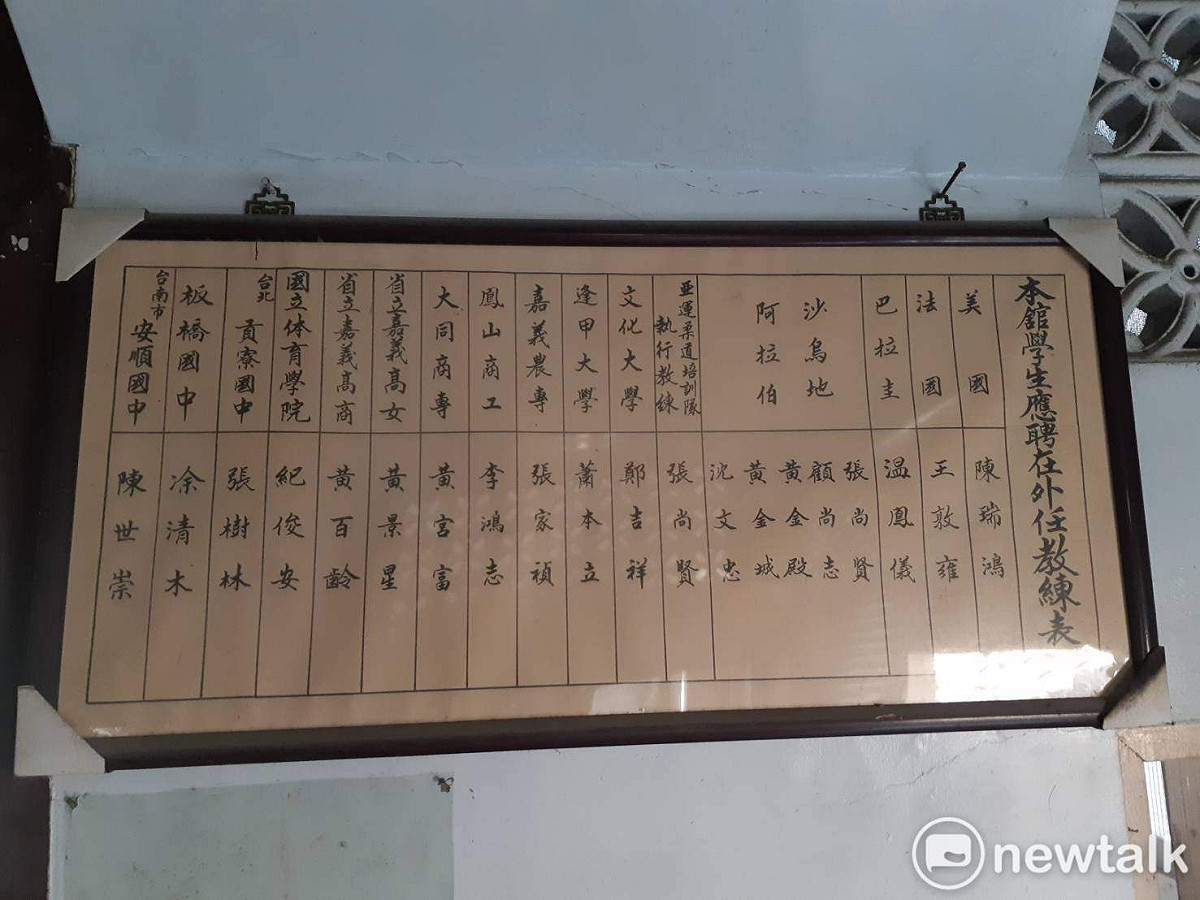 本舘學生應聘在外任教練表
美國
陳瑞鴻
法國
王敦雍
巴拉圭
溫鳳儀
沙烏地
阿拉伯
張尚賢
顧尚志
黃金殿
黃金城
沈文忠
亞運柔道培訓隊
執行教練
張尚賢
文化大學
鄭吉祥
逢甲大學
蕭本立
嘉義農專
張家禎
鳳山商工
李鴻志
大同商專
黃宮富
省立嘉義高女
黃景星
省立嘉義高商
黃百齡
國立体育學院
紀俊安
台北
貢寮國中
張樹林
板橋國中
涂清木
台南市
安順國中
陳世崇
newtalk